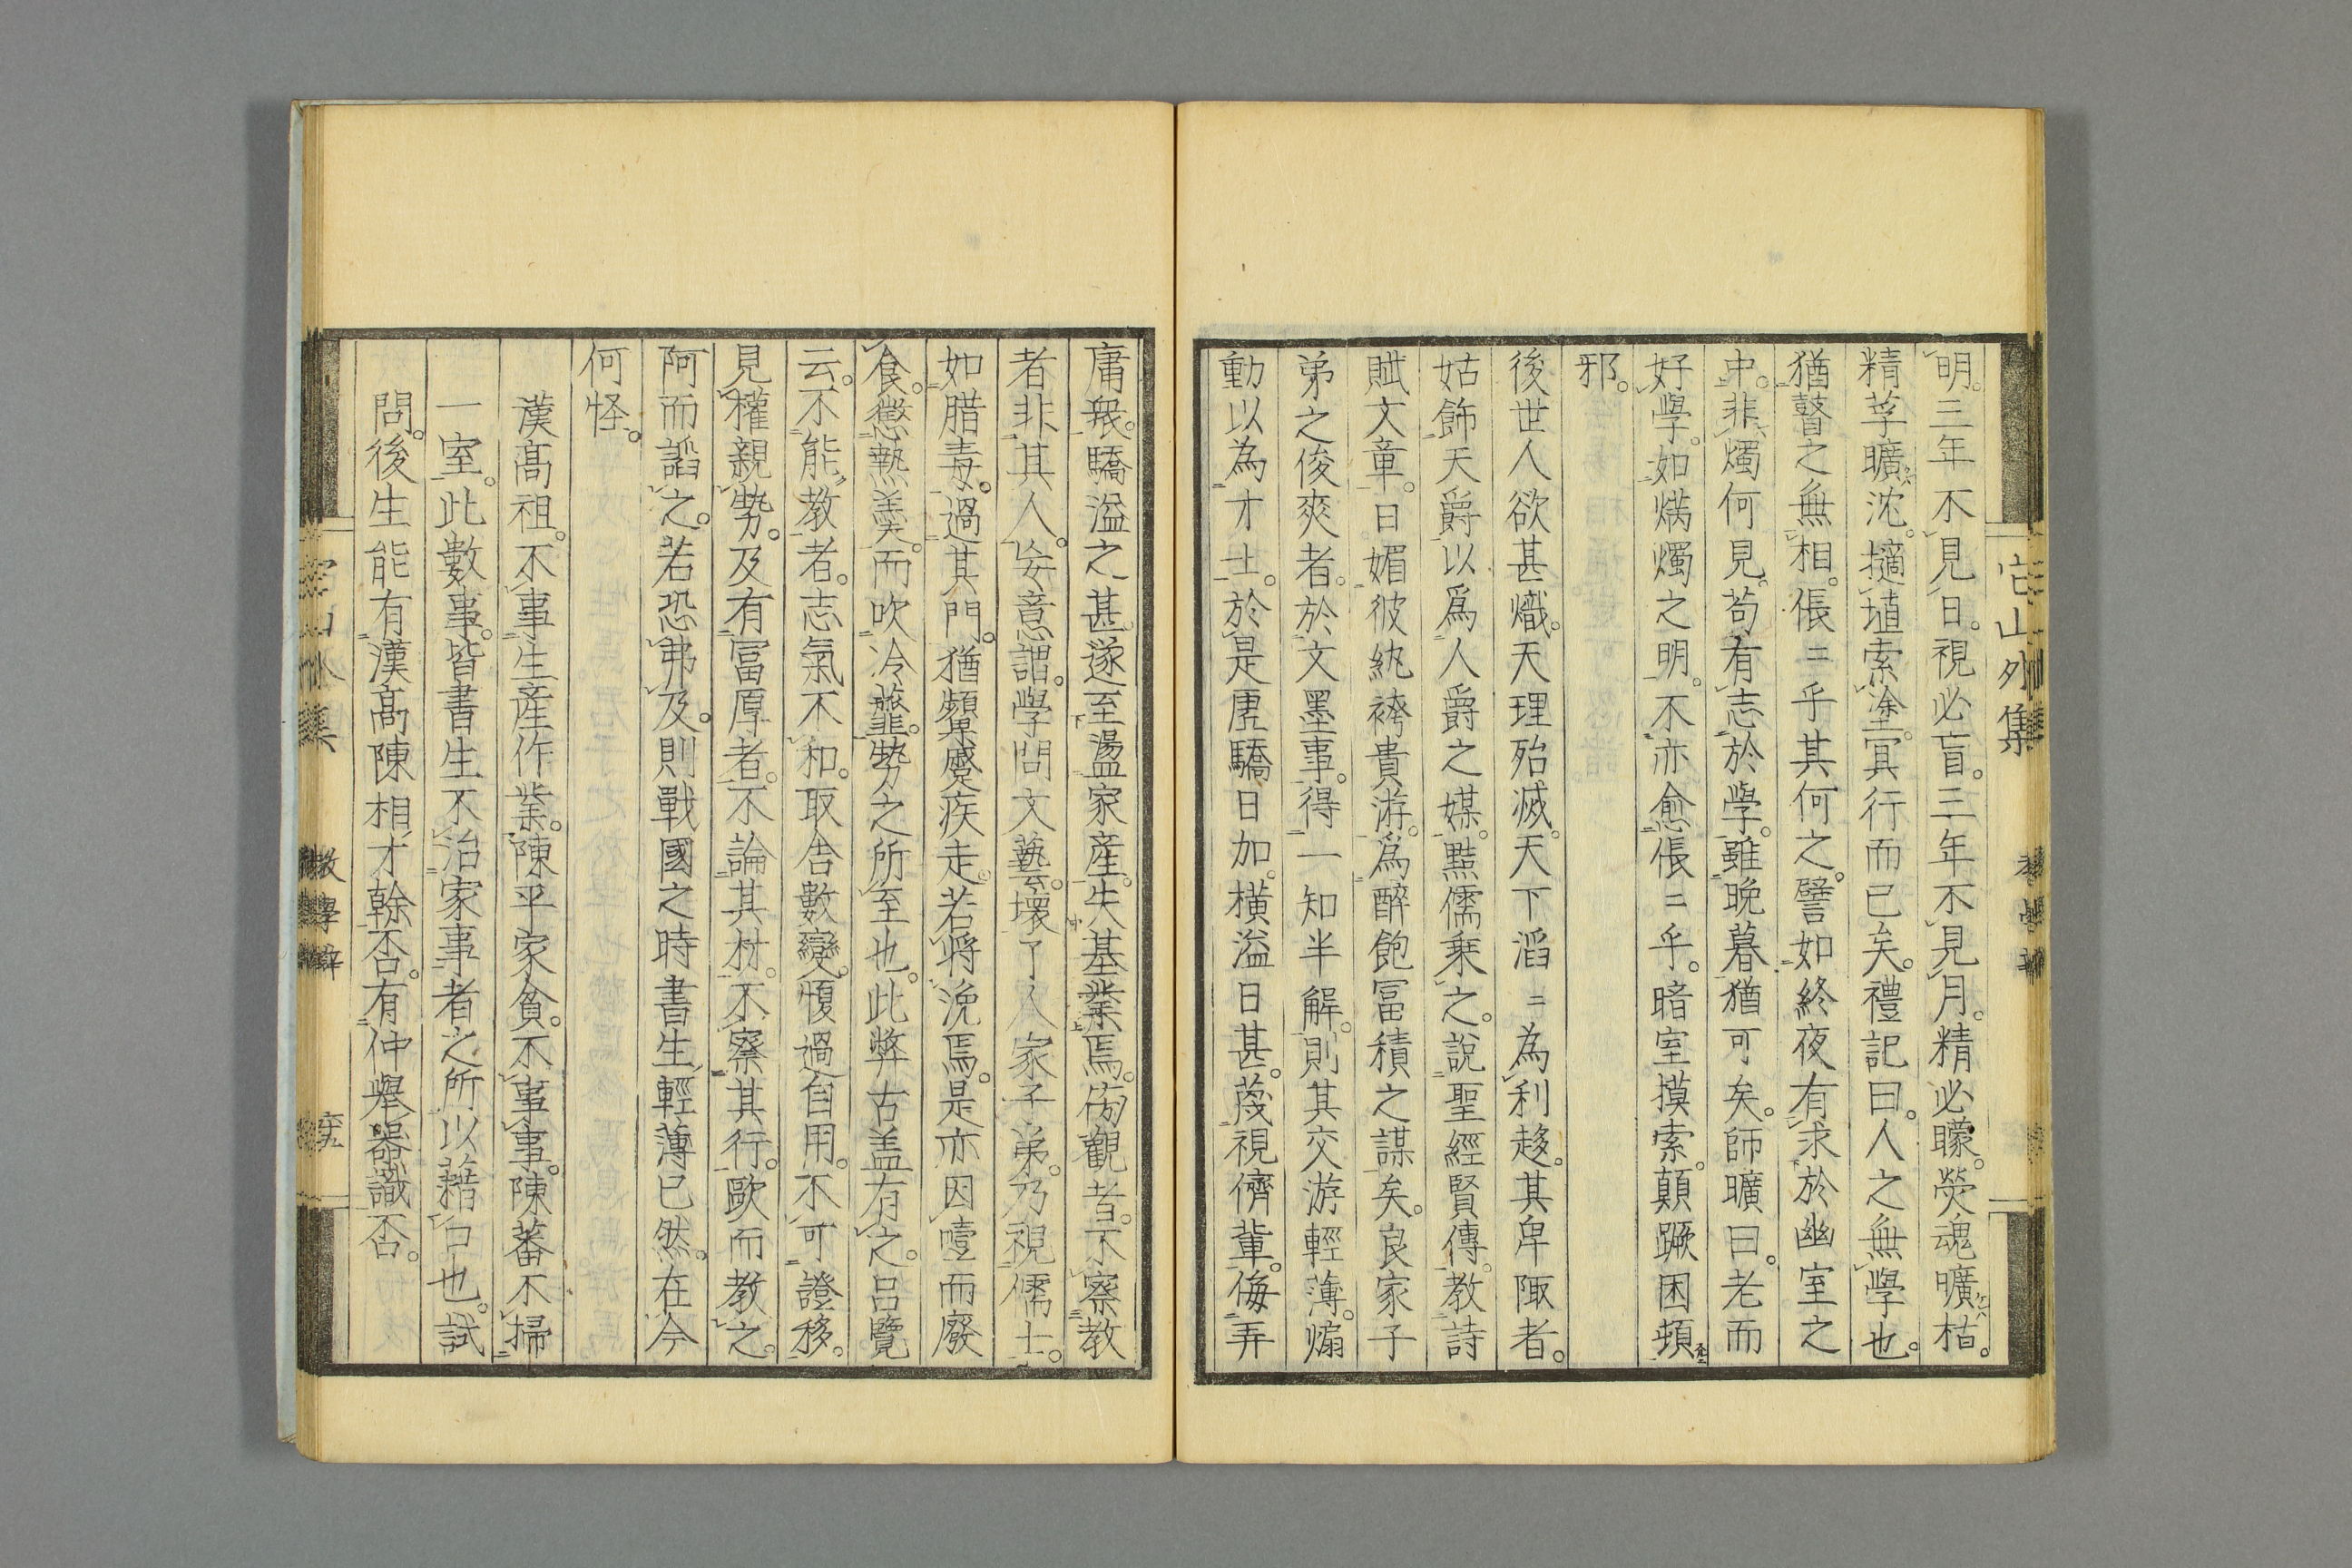 明。三年不見日。視必盲。三年不見月。精必矇。熒魂曠枯。
精莩曠沈。擿埴索塗。冥行而已矣。禮記曰。人之無學也。
猶瞽之無相。倀〻乎其何之。譬如終夜有求於幽室之
中。非燭何見。苟有志於學。雖晚暮猶可矣。師曠曰。老而
好學。如炳燭之明。不亦愈倀〻乎。暗室摸索。顛蹶困頓
邪。
後世人欲甚熾。天理殆滅。天下滔〻為利趍。其卑陬者。
姑飾天爵以爲人爵之媒。黠儒乗之。說聖經賢傳。教詩
賦文章。日媚彼紈袴貴游。爲醉飽冨積之謀矣。良家子
弟之俊爽者。於文墨事。得一知半解。則其交游輕薄。煽
動以為才士。於是虚驕日加。橫溢日甚。蔑視儕輩。侮弄
庸衆。驕溢之甚。遂至盪家産。失基業焉。傍觀者。不察教
者非其人。妄意謂。學問文藝。壞了人家子弟。乃視儒士。
如腊毒。過其門。猶顰蹙疾走。若將浼焉。是亦因噎而廢
食。懲熱羹。而吹冷虀。勢之所至也。此弊古盖有之。呂覽
云。不能教者。志氣不和。取舍數變。愎過自用。不可證移。
見權親勢。及有冨厚者。不論其材。不察其行。歐而教之。
阿而諂之。若恐弗及。則戰國之時書生輕薄已然。在今
何怪。
漢髙祖。不事生産作業。陳平家貧。不事事。陳蕃不掃
一室。此數事。皆書生不治家事者之所以藉口也。試
問。後生能有漢髙陳相才幹否。有仲舉器識否。
宅山外集
教學辯